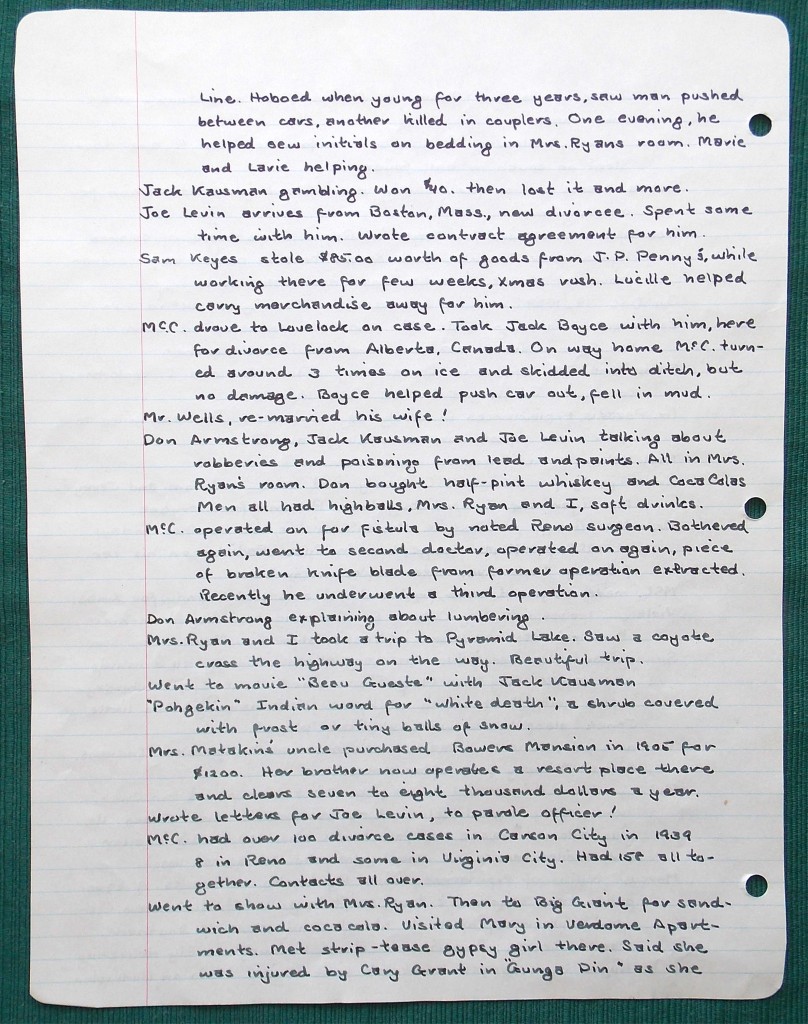 Line. Hoboed when young for three years, saw man pushed
between cars, another killed in couplers. One evening, he
helped sew initials on bedding in Mrs. Ryans room. Marie
and Larie helping.
Jack Kausman gambling. Won $40. then lost it and more.
Joe Levin arrives from Boston, Mass., new divorcee. Spent some
time with him. Wrote contract agreement for him.
Sam Keyes stole $85.00 worth of goods from J.P. Penny's, while
working there for few weeks, Xmas rush. Lucille helped
carry merchandise away for him.
McC. drove to Lovelock on case. Took Jack Boyce with him, here
for divorce from Alberta, Canada. On way home McC. turn-
ed around 3 times on ice and skidded into ditch, but
no damage. Boyce helped push car out, fell in mud.
Mr. Wells, re-married his wife!
Don Armstrong, Jack Kausman and Joe Levin talking about
robberies and poisoning from lead and paints. All in Mrs.
Ryan's room. Don bought half-pint whiskey and Coca Colas
Men all had highballs, Mrs. Ryan and I, soft drinks.
McC. operated on for fistula by noted Reno surgeon. Bothered
again, went to second doctor, operated on again, piece
of broken knife blade from former operation extracted.
Recently he underwent a third operation.
Don Armstrong explaining about lumbering.
Mrs. Ryan and I took a trip to Pyramid Lake. Saw a coyote
cross the highway on the way. Beautiful trip.
Went to movie "Beau Gueste" with Jack Kausman
"Pohgekin" Indian word for "white death", a shrub covered
with frost or tiny balls of snow.
Mrs. Matakins' uncle purchased Bowers Mansion in 1905 for
$1200. Her brother now operates a resort place there
and clears seven to eight thousand dollars a year.
Wrote letters for Joe Levin, to parole officer!
McC. had over 100 divorce cases in Carson City in 1939
8 in Reno and some in Virginia City. Had 158 all to-
gether. Contacts all over.
Went to show with Mrs. Ryan. Then to Big Giant for sand-
wich and coca cola. Visited Mary in Verdome Apart-
ments. Met strip-tease gypsy girl there. Said she
was injured by Cary Grant in "Gunga Din" as she